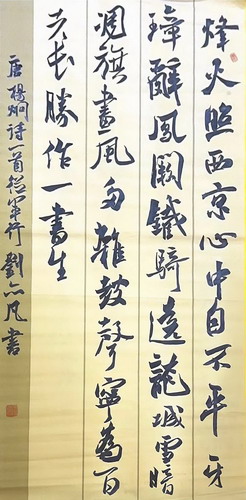 烽火照西京心中自不平牙
璋辭鳳闕鐵騎遶龍城雪暗
凋旗畫風多雜鼓聲寧為百
夫長勝作一書生
唐楊炯詩一首從軍行 劉凡書